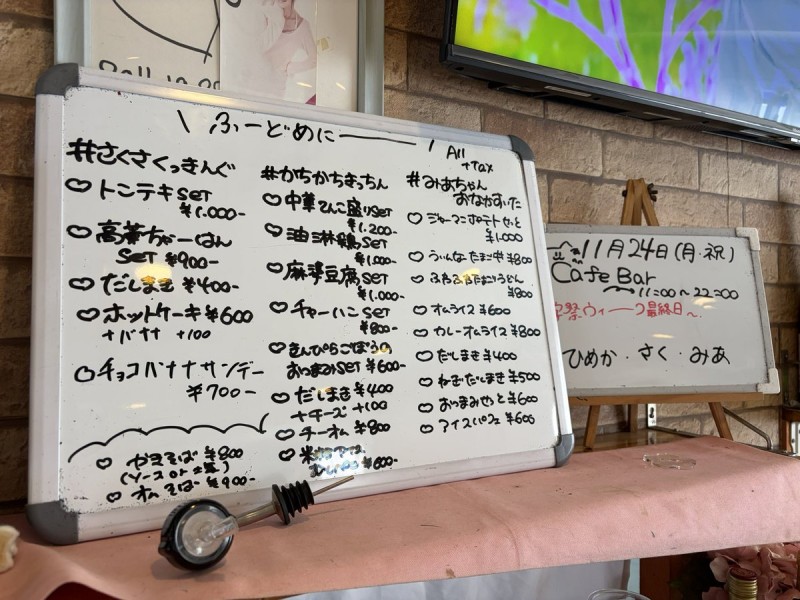 \ ふーどめにー /
All
+Tax
#さくさくっきんぐ
♡トンテキSET
¥1.000-
♡高菜ちゃーはん
SET ¥900-
♡だしまき ¥400-
♡ホットケーキ ¥600
+バナナ +100
♡チョコバナナサンデー
¥700-
♡やきそば ¥800
♡オムそば ¥900-
#かちかちきっちん
♡中華てんこ盛りSET
¥1.200-
♡油淋鶏SET
¥1.000-
♡麻婆豆腐SET
¥1.000-
♡チャーハンSET
¥800-
♡きんぴらごぼうの
おつまみSET ¥600-
♡だしまき ¥400
+チーズ +100
♡チーオム ¥800
♡米粉アイス
¥600-
#みあちゃん
おなかすいた
♡ジャーマンポテトせっと
¥1.000
♡ういんなーたまご丼 ¥800
♡ふわふわたまごうどん
¥800
♡オムライス ¥600
♡カレーオムライス ¥800
♡だしまき ¥400
♡ねぎだしまき ¥500
♡おつまみせっと ¥600
♡アイスパフェ ¥600
11月24日(月・祝)
Cafe Bar
11:00～22:00
祭ウィーク最終日～
ひめか・さく・みあ